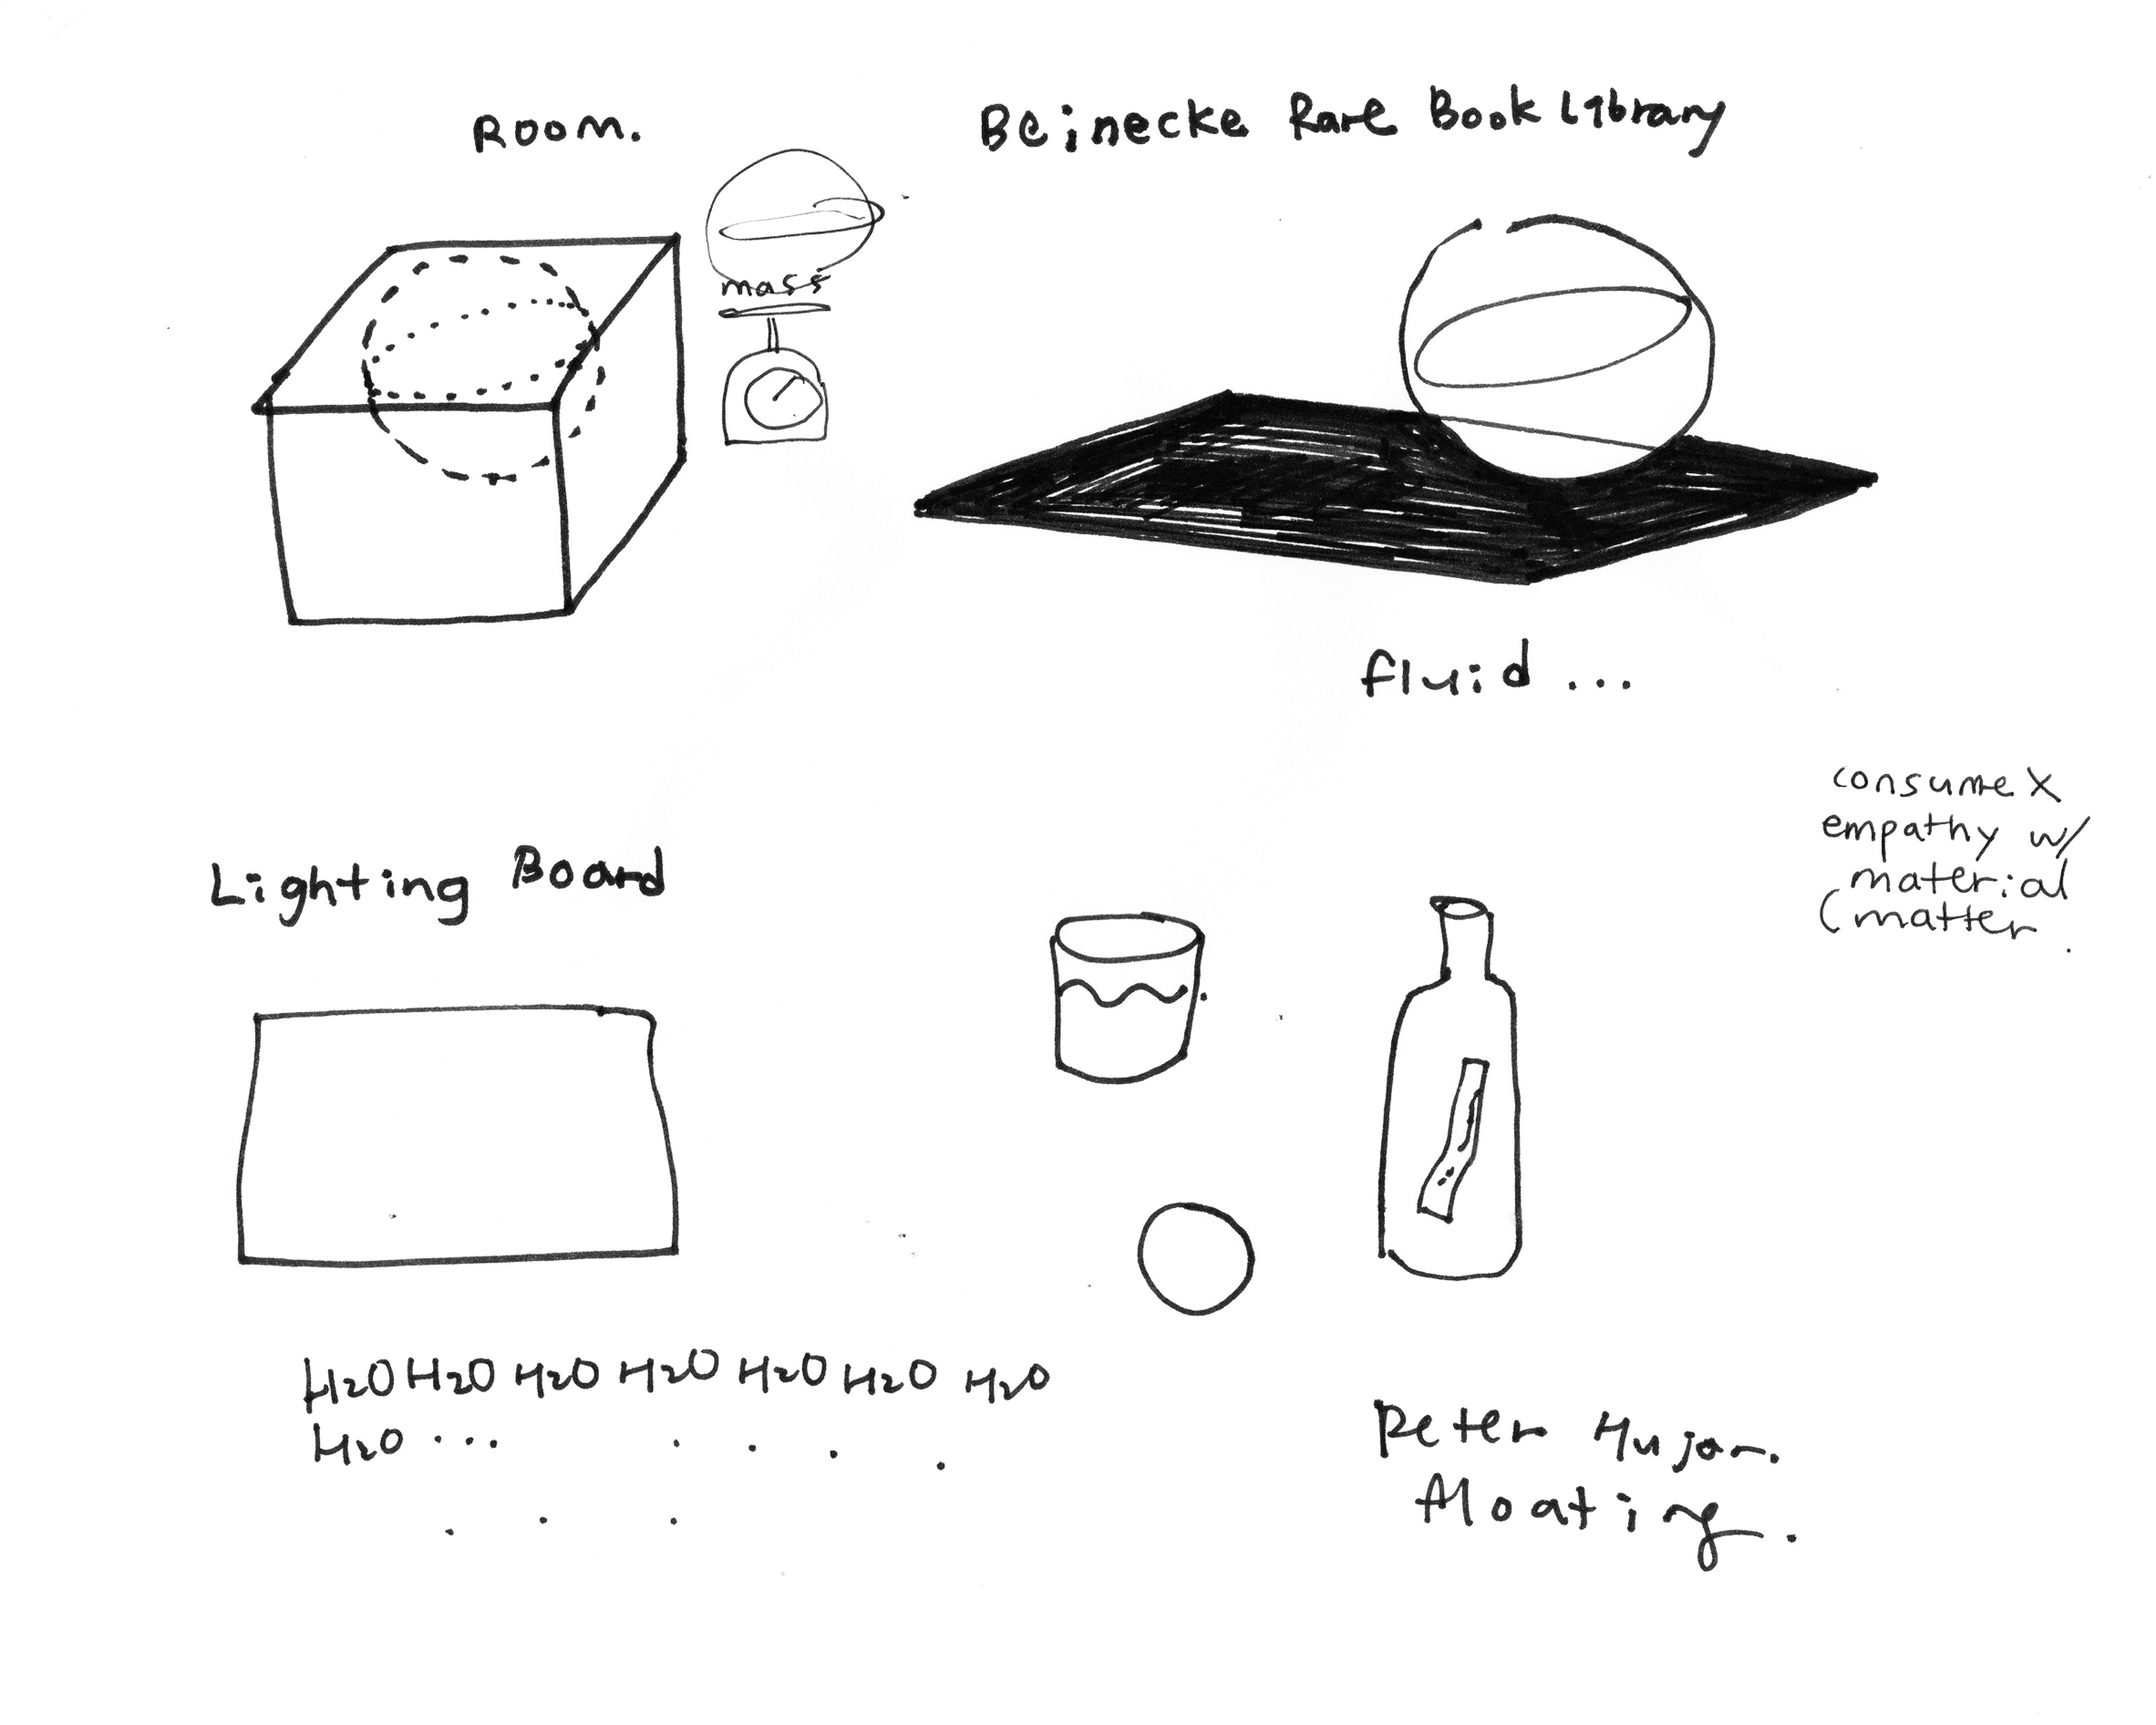 Room.
Beinecke Rare Book Library
mass
fluid ...
consume X
empathy w/
material
(matter.
Lighting Board
H2O H2O H2O H2O H2O H2O H2O
H2O ...
Peter Hujar.
floating.